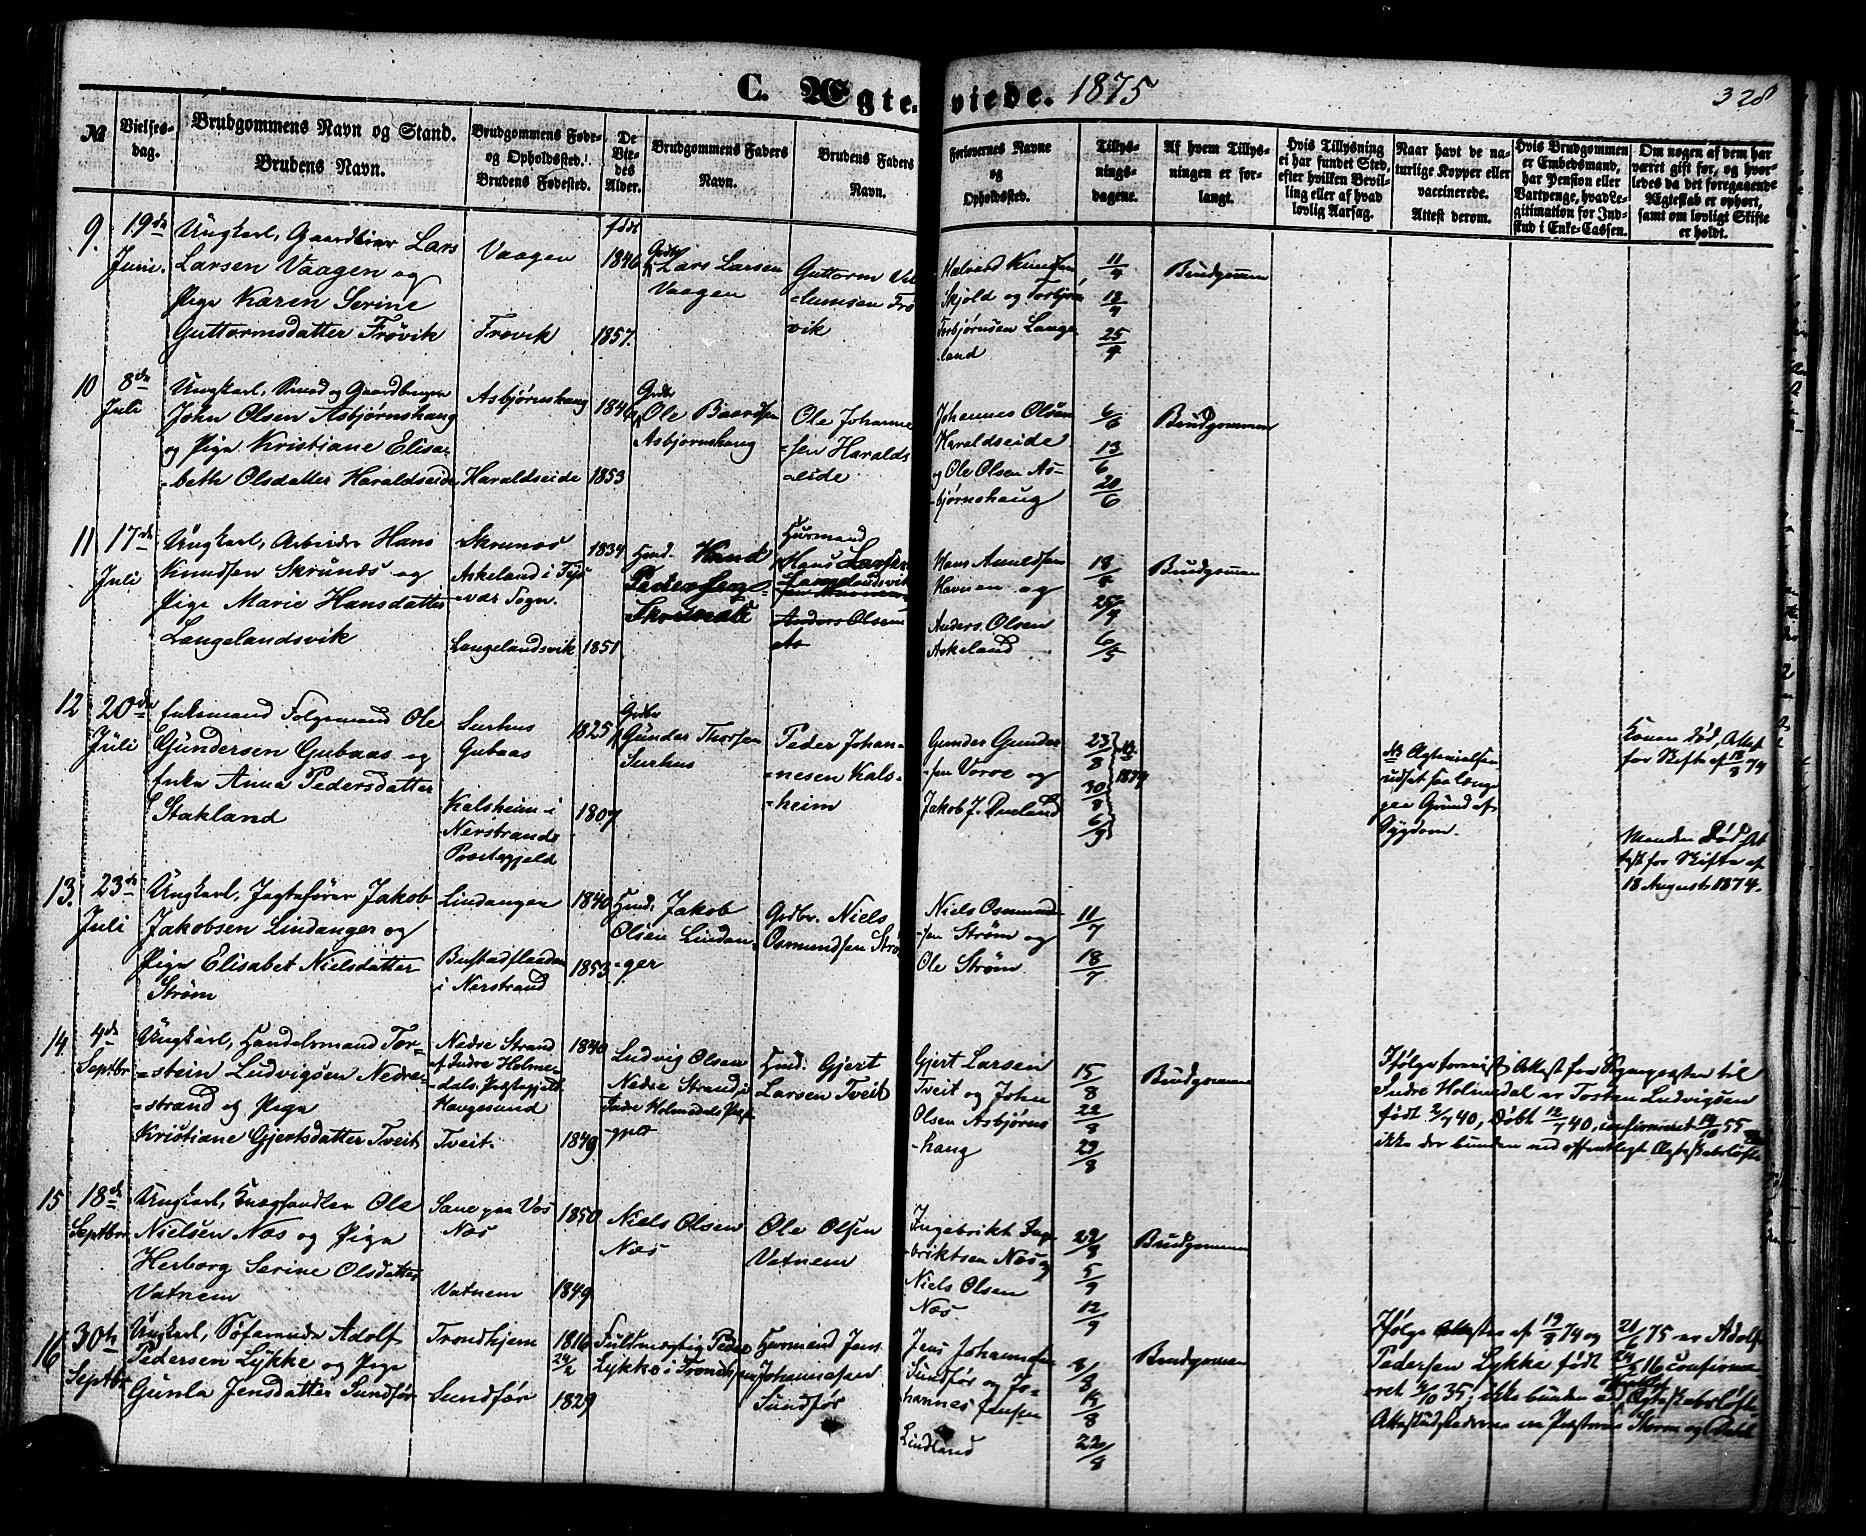 C. Ægteviede. 1875
328
№
Vielses-
dag.
Brudgommens Navn og Stand.
Brudens Navn.
Brudgommens Føde-
og Opholdssted.
Brudens Fødested.
De
Vie-
des
Alder.
Brudgommens Faders
Navn.
Brudens Faders
Navn.
Forlovernes Navne
og
Opholdssted.
Tillys-
nings-
dagene.
Af hvem Tillys-
ningen er for-
langt.
Hvis Tillysning
ei har fundet Sted,
efter hvilken Bevil-
ling eller af hvad
lovlig Aarsag.
Naar havt de na-
turlige Kopper eller
vaccinerede.
Attest derom.
Hvis Brudgommen
er Embedsmand,
har Pension eller
Vartpenge, hvad Le-
gitimation for Ind-
skud i Enke-Cassen.
Om nogen af dem har
været gift før, og hvor-
ledes da det foregaaende
Ægteskab er ophørt,
samt om lovligt Skifte
er holdt.
9.
19de
Juni.
Ungkarl, Gaardbruger Lars
Larsen Vaagen og
Pige Karen Serine
Guttormsdatter Frøvik
Vaagen
Frøvik
født
1846
1857.
Grdbr
Lars Larsen
Vaagen
Guttorm Vil-
-lumsen Frø
vik
Halvard Knudsen
Skjold og Torbjørn
Torbjørnsen Lange-
land
11/4
18/4
25/4
Brudgommen
10
8de
Juli
Ungkarl, Smed og Gaardbruger
John Olsen Asbjørnshaug
og Pige Kristiane Elisa-
-beth Olsdatter Haraldseide
Asbjørnshaug
Haraldseide
1846
1853
Grdbr
Ole Baardsen
Asbjørnshaug
Ole Johanne
-sen Haralds
-eide
Johannes Olsen
Haraldseide
og Ole Olsen As-
-bjørnshaug
6/6
13/6
20/6
Brudgommen
11
17de
Juli
Ungkarl, Arbeider Hans
Knudsen Skrunes og
Pige Marie Hansdatter
Langelandsvik
Skrunes
Askeland i Tys
-vær Sogn.
Langelandsvik
1834
1851
Hmd.
Husmand
Hans Larsen
Langelandsvik
Anders Olsen
Hans Amundsen
Havnen og
Anders Olsen
Askeland
18/4
25/4
6/5
Brudgommen
12
20de
Juli
Enkemand Følgemand Ole
Gundersen Gubaas og
Enke Anna Pedersdatter
Stakland
Surhus
Gubaas
Kalsheim i
Nerstrands
Prestegjeld
1825
1807
Grdbr
Gunder Thorsen
Surhus
Peder Johan-
-nesen Kals-
-heim
Gunder Gunder
-sen Vorre og
Jakob J. Dueland
23/8
30/8
6/9
1874
NB Ægtevielsen
udsat saalænge
paa Grund af
Sygdom.
Konen død, Attest
for Skifte af 18/8 74
Manden død, At-
test for Skifte af
18 August 1874.
13.
23de
Juli
Ungkarl, Jagtefører Jakob
Jakobsen Lindanger og
Pige Elisabet Nielsdatter
Strøm
Lindanger
i Nerstrand
1840
1853
Hmd. Jakob
Olsen Lindan-
-ger
Grdbr. Niels
Osmundsen Strø
Niels Osmund
-sen Strøm og
Ole Strøm
11/7
18/7
14.
4de
Septbr
Ungkarl, Handelsmand Tor-
-stein Ludvigsen Nedre-
-strand og Pige
Kristiane Gjertsdatter Tveit
Nedre Strand
af Indre Holme-
dals Prestegjeld
Haugesund
Tveit.
1840
1849
Ludvig Olsen
Nedre Strand i
Indre Holmedals Præst
-gjeld
Hmd. Gjert
Larsen Tveit
Gjert Larsen
Tveit og John
Olsen Asbjørns
-haug
15/8
22/8
29/8
Brudgommen
Ifølge forevist Attest fra Sognepresten til
Indre Holmedal er Torsten Ludvigsen
født 2/7 40, døbt 12/7 40, confirmeret 14/10 55
ikke der bunden ved offentligt Ægteskabsløfte
15
18de
Septbr
Ungkarl, Kræghandler Ole
Nielsen Næs og Pige
Herborg Serine Olsdatter
Vatnem
Sane paa Vos
Næs
Vatnem
1850
1849
Niels Olsen
Næs
Ole Olsen
Vatnem
Ingebrikt Inge
-briktsen Næs og
Niels Olsen
Næs
29/8
5/9
12/9
Brudgommen
16
30te
Septbr
Ungkarl, Søfarende Adolf
Pedersen Lykke og Pige
Gunla Jensdatter Sundfør
Trondhjem
Sundfør
1816
24/2
1829
Fuldmægtig Peder
Lykke i Trondhjem
Husmand Jens
Johannesen
Sundfør
Jens Johannesen
Sundfør og Jo-
-hannes Jensen
Lindland
8/8
15/8
22/8
Brudgommen
Ifølge Attester af 19/9 74 og 21/6 75 er Adolf
Pedersen Lykke født 24/2 16 confirme-
ret 4/10 35. ikke bunden ved Ægteskabsløfte
Attestudstederne ere Presterne Storm og Dahl